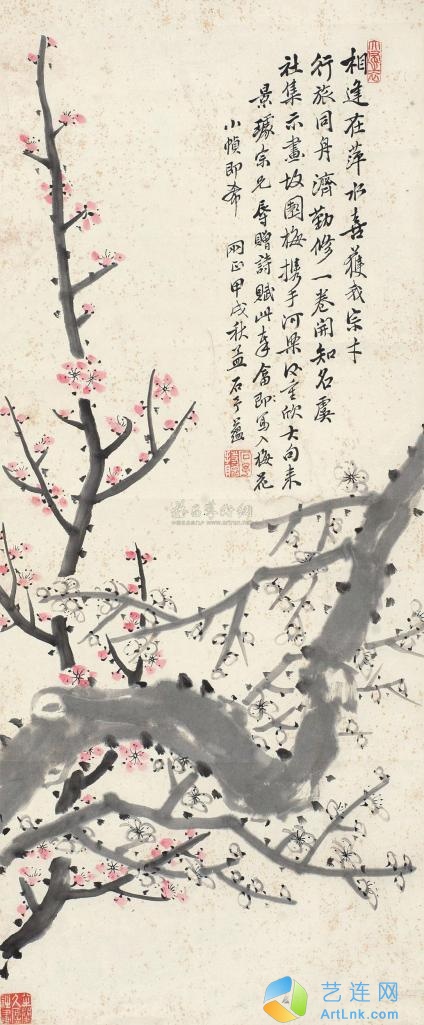 相逢在萍水喜獲我宗才
行旅同舟濟勤修一卷開知名虞
社集示畫故園梅携手河梁日重欣大句来
景璩宗兄辱贈詩賦此奉畣即寫入梅花
小幀即希
兩正甲戌秋孟石予蘊
艺连网
ArtLnk.com